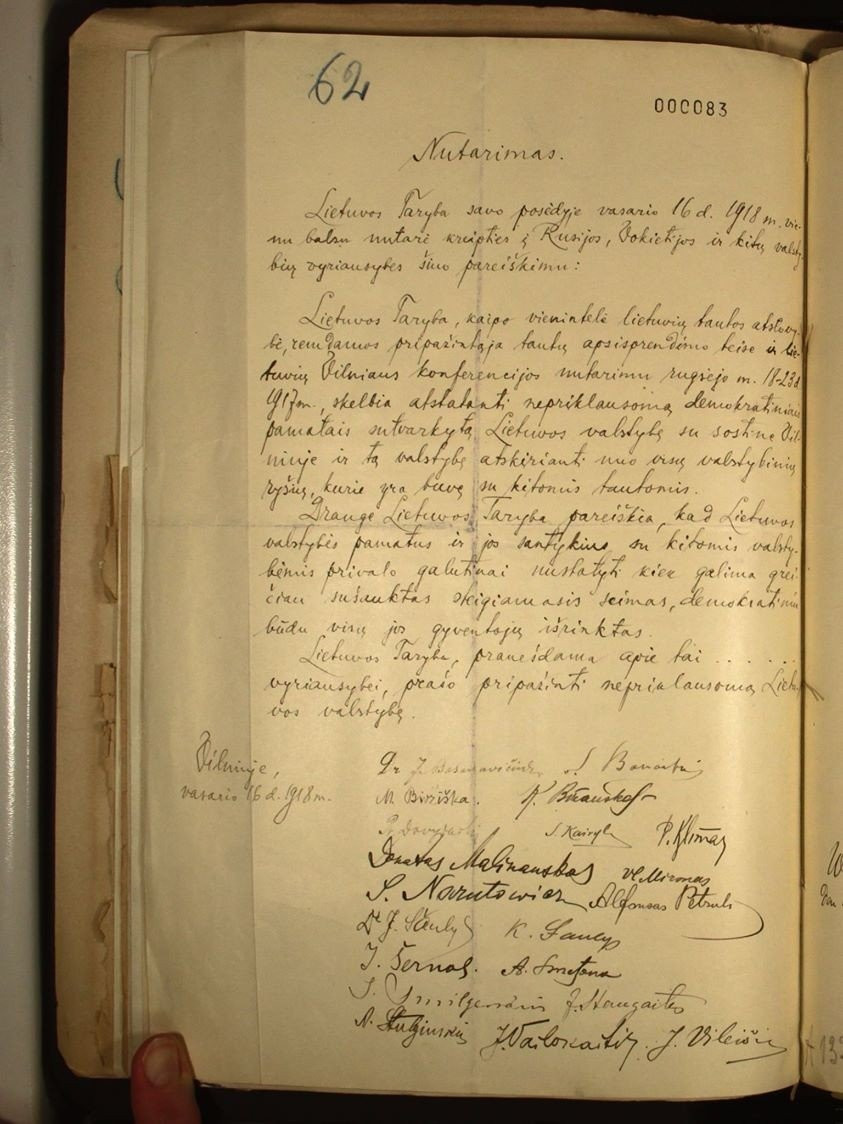 62
000083
Nutarimas.
Lietuvos Taryba savo posėdyje vasario 16 d. 1918 m. vie-
nu balsu nutarė kreiptis į Rusijos, Vokietijos ir kitų valsty-
bių vyriausybes šiuo pareiškimu:
Lietuvos Taryba, kaipo vienintelė lietuvių tautos atstovy-
bė, remdamos pripažintąja tautų apsisprendimo teise ir lie-
tuvių Vilniaus konferencijos nutarimu rugsėjo m. 18-23 d.
1917 m., skelbia atstatanti nepriklausomą demokratiniais
pamatais sutvarkytą Lietuvos valstybę su sostine Vil-
niuje ir tą valstybę atskirianti nuo visų valstybinių
ryšių, kurie yra buvę su kitomis tautomis.
Drauge Lietuvos Taryba pareiškia, kad Lietuvos
valstybės pamatus ir jos santykius su kitomis valsty-
bėmis privalo galutinai nustatyti kiek galima grei-
čiau sušauktas steigiamasis seimas, demokratiniu
būdu visų jos gyventojų išrinktas.
Lietuvos Taryba, pranešdama apie tai . . . . . .
vyriausybei, prašo pripažinti nepriklausomą Lietu-
vos valstybę.
Vilniuje,
vasario 16 d. 1918 m.
Dr J. Basanavičius S. Banaitis
M. Biržiška. K. Bizauskas
P. Dovydaitis S. Kairys P. Klimas
Donatas Malinauskas Vl. Mironas
S. Narutowicz Alfonsas Petrulis
Dr J. Šaulys K. Šaulys
J. Šernas. A. Smetona
J. Smilgevičius J. Staugaitis
A. Stulginskis J. Vailokaitis. J. Vileišis